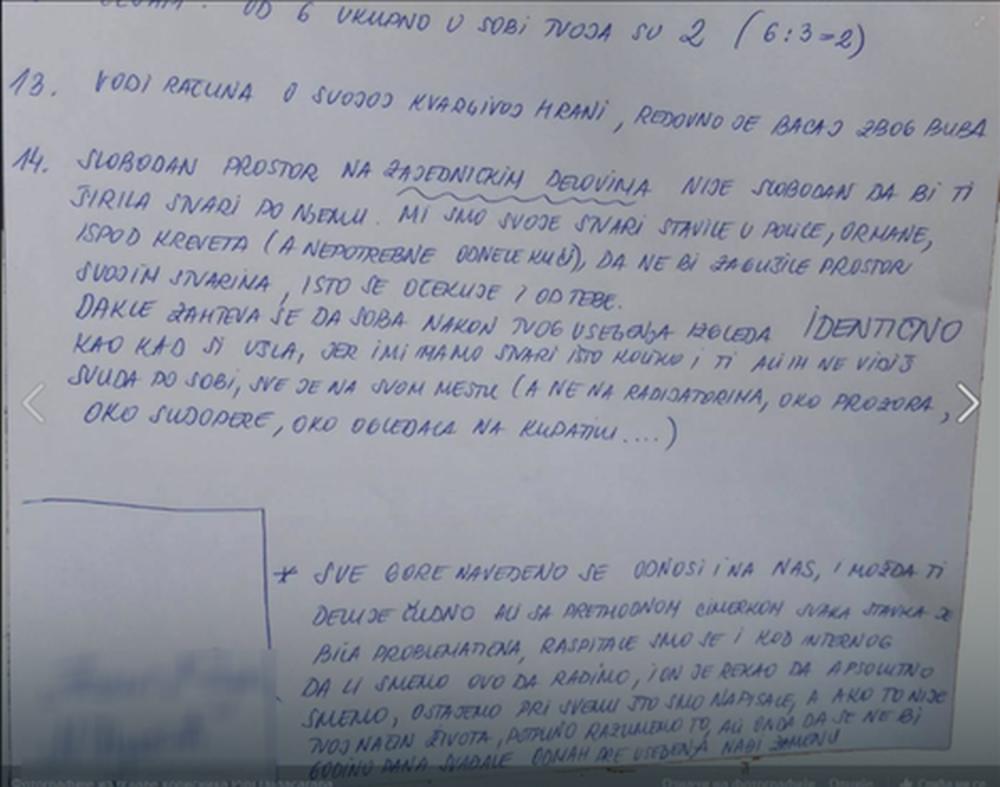 OD 6 UKUPNO U SOBI TVOJA SU 2 (6:3=2)
13. VODI RAČUNA O SVOJOJ KVARLJIVOJ HRANI, REDOVNO JE BACAJ ZBOG BUBA
14. SLOBODAN PROSTOR NA ZAJEDNIČKIM DELOVIMA NIJE SLOBODAN DA BI TI
ŠIRILA STVARI PO NJEMU. MI SMO SVOJE STVARI STAVILE U POLICE, ORMANE,
ISPOD KREVETA (A NEPOTREBNE ODNELE KUĆI), DA NE BI ZAGUŠILE PROSTOR
SVOJIM STVARIMA, ISTO SE OČEKUJE I OD TEBE.
DAKLE ZAHTEVA SE DA SOBA NAKON TVOG USELJENJA IZGLEDA IDENTIČNO
KAO KAD SI UŠLA, JER I MI IMAMO STVARI ISTO KOLIKO I TI ALI IH NE VIDIŠ
SVUDA PO SOBI, SVE JE NA SVOM MESTU (A NE NA RADIJATORIMA, OKO PROZORA,
OKO SUDOPERE, OKO OGLEDALA NA KUPATILU....)
* SVE GORE NAVEDENO SE ODNOSI I NA NAS, I MOŽDA TI
DELUJE ČUDNO ALI SA PRETHODNOM CIMERKOM SVAKA STAVKA JE
BILA PROBLEMATIČNA, RASPITALE SMO SE I KOD INTERNOG
DA LI SMEMO OVO DA RADIMO, I ON JE REKAO DA APSOLUTNO
SMEMO, OSTAJEMO PRI SVEMU ŠTO SMO NAPISALE, A AKO TO NIJE
TVOJ NAČIN ŽIVOTA, POTPUNO RAZUMEMO TO, ALI ONDA DA SE NE BI
GODINU DANA SVAĐALE ODMAH PRE USELJENJA NAĐI ZAMENU